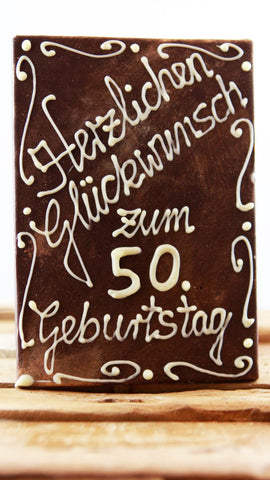 Herzlichen
Glückwunsch
zum
50.
Geburtstag